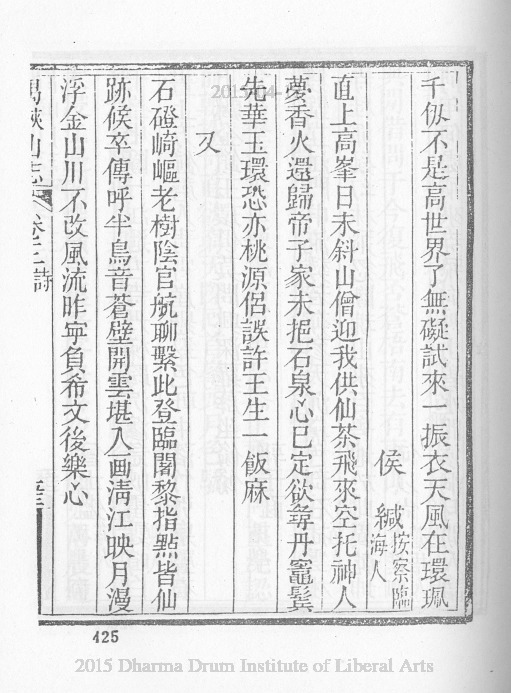 千仭不是高世界了無礙試來一振衣天風在環珮
侯 緘 按察臨海人
直上高峯日未斜山僧迎我供仙茶飛來空托神人
夢香火還歸帝子家未挹石泉心已定欲尋丹竈鬂
先華玉環恐亦桃源侶誤許王生一飯麻
又
石磴崎嶇老樹陰官航聊繫此登臨闍黎指㸃皆仙
跡候卒傳呼半鳥音蒼壁開雲堪入画淸江映月漫
浮金山川不改風流昨寜負希文後樂心
禺峽山志 卷二 詩
425
2015 Dharma Drum Institute of Liberal Arts